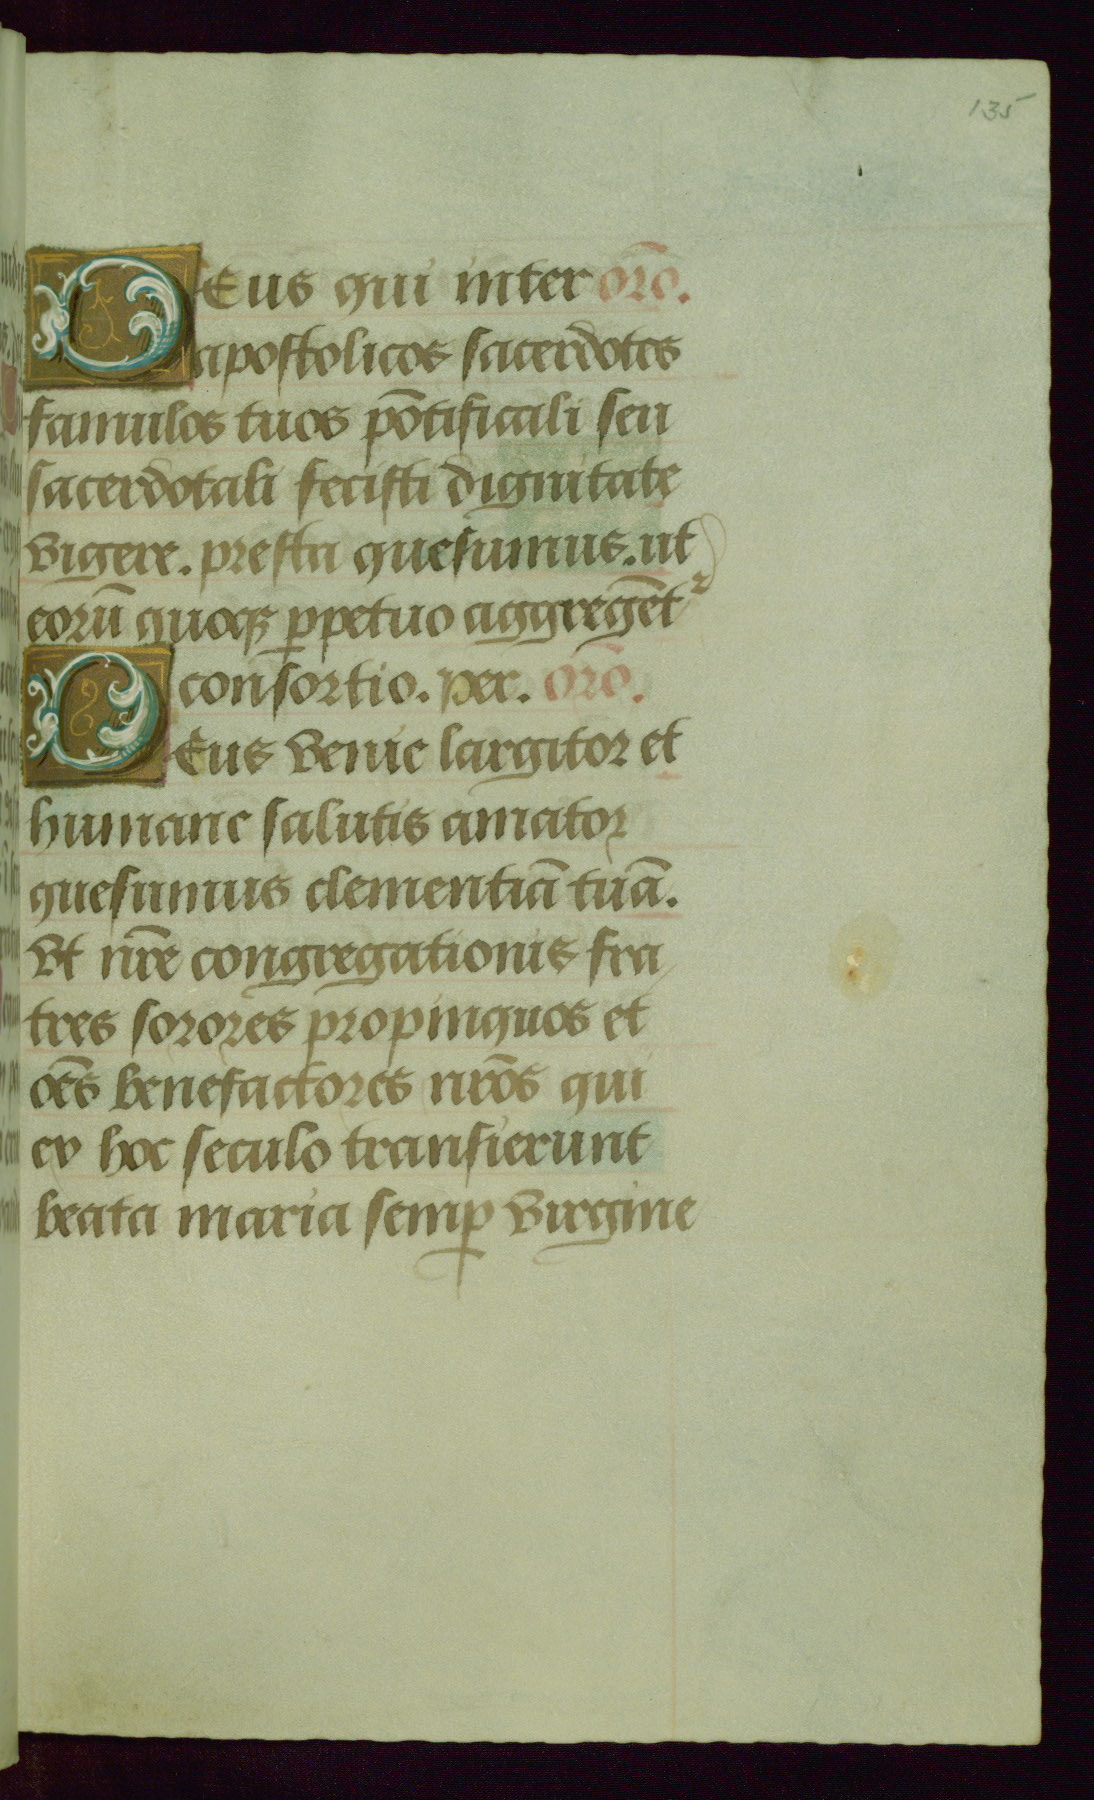 135
DEus qui inter orō.
apostolicos sacerdotes
famulos tuos pōtificali seu
sacerdotali fecisti dignitate
vigere. presta quesumus. ut
eorū quoqꝫ ꝑpetuo aggregēt᷑
consortio. per. orō.
DEus venie largitor et
humane salutis amator
quesumus clementiā tuā.
vt nr̄e congregationis fra
tres sorores propinquos et
oēs benefactores nr̄os qui
ex hoc seculo transierunt
beata maria semꝑ virgine